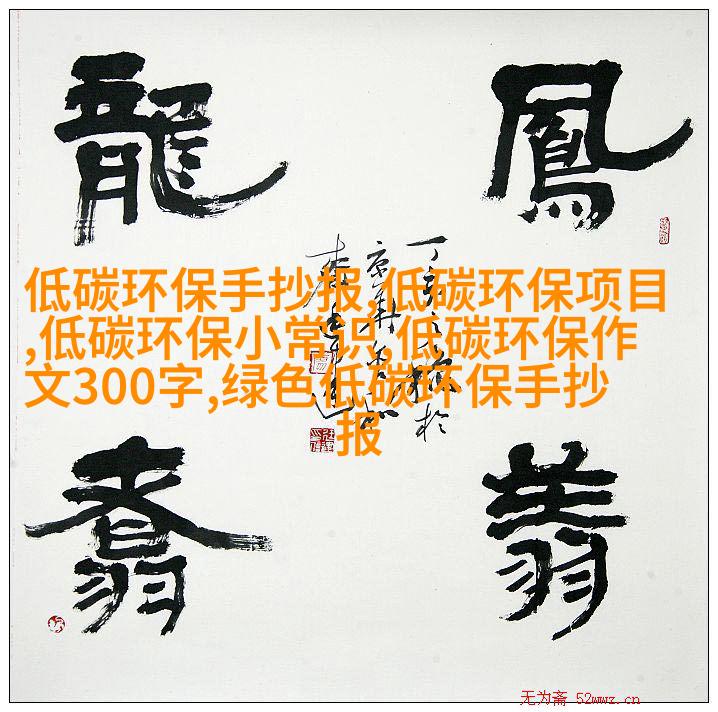 鳳
翔
龍
翥
低碳环保手抄报,低碳环保项目
,低碳环保小常识,低碳环保作
文300字,绿色低碳环保手抄
报
无为斋 52wwz.cn